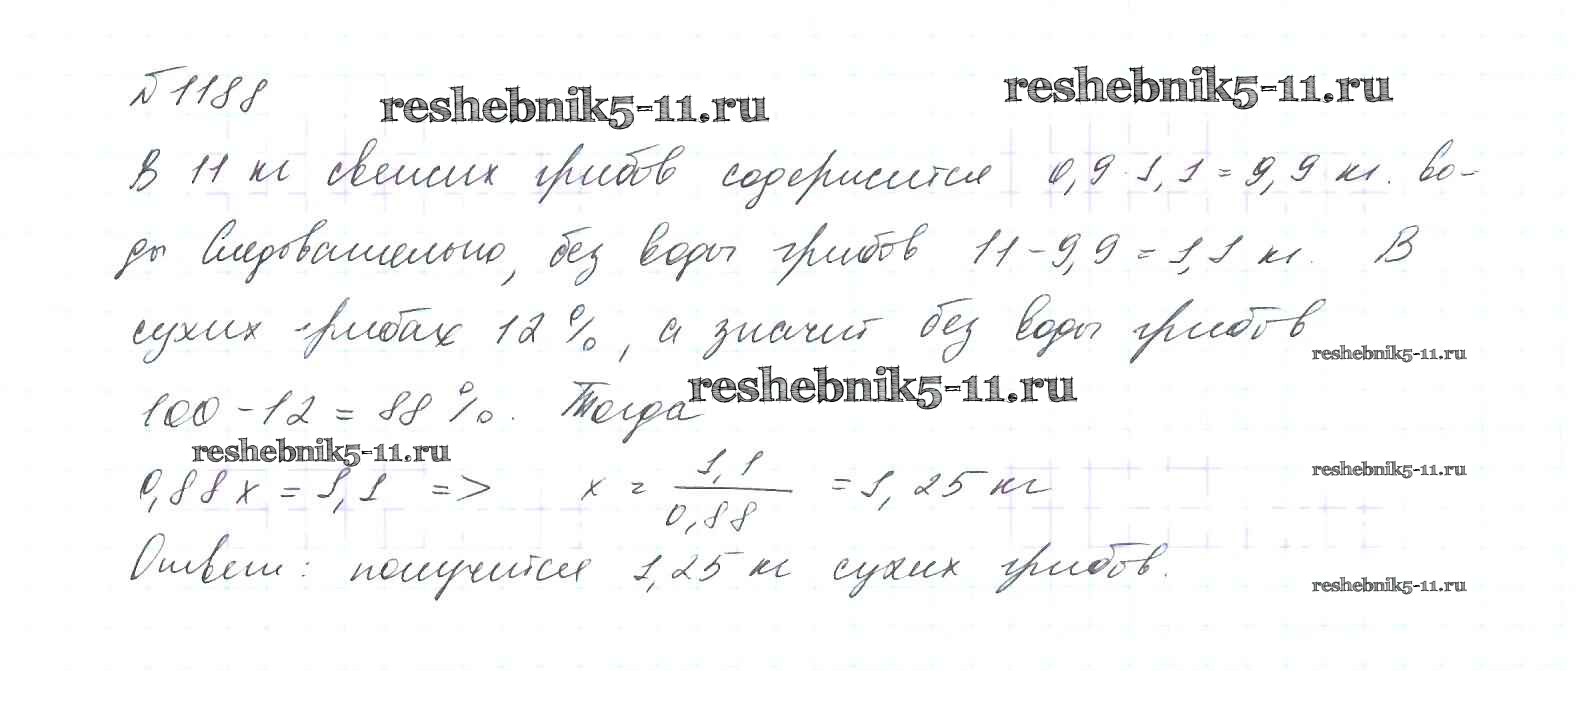 №1188
reshebnik5-11.ru
reshebnik5-11.ru
В 11 кг свежих грибов содержится 0,9·1,1=9,9 кг. во-
ды Следовательно, без воды грибов 11-9,9=1,1 кг. В
сухих грибах 12%, а значит без воды грибов
reshebnik5-11.ru
100-12=88%. Тогда
reshebnik5-11.ru
reshebnik5-11.ru
0,88x=1,1 => x = 1,1/0,88 = 1,25 кг
reshebnik5-11.ru
Ответ: получится 1,25 кг сухих грибов.
reshebnik5-11.ru